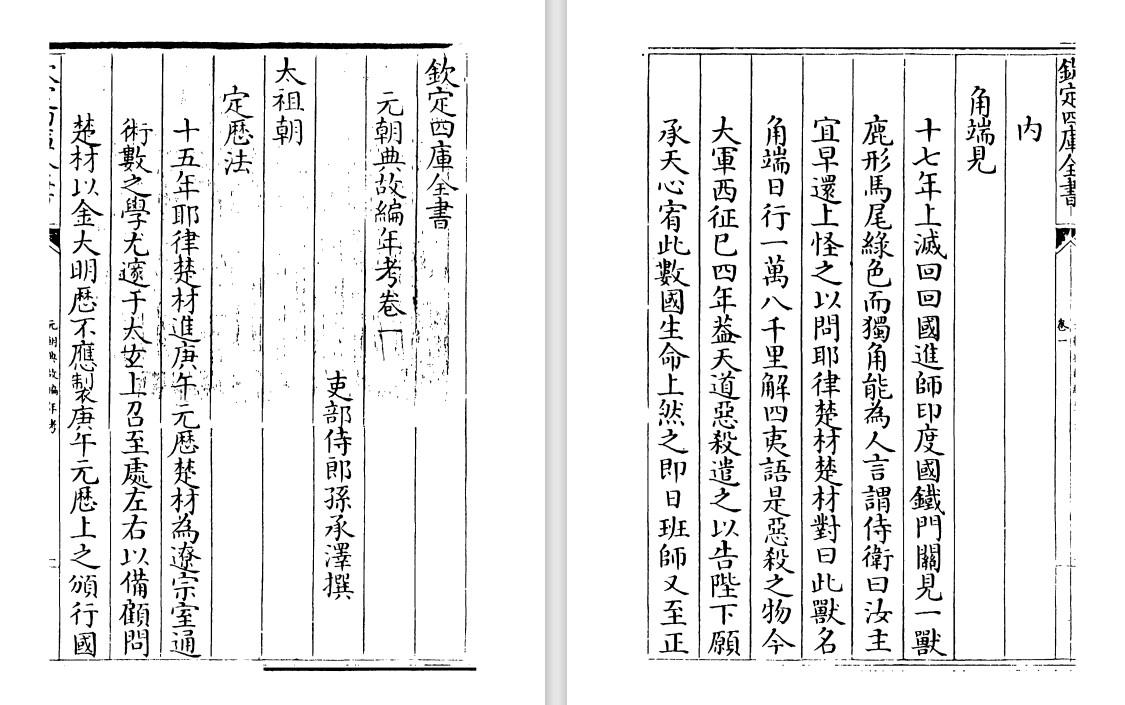 欽定四庫全書
元朝典故編年考卷一
吏部侍郎孫承澤撰
太祖朝
定歷法
十五年耶律楚材進庚午元歷楚材為遼宗室通
術數之學尤邃于太玄上召至處左右以備顧問
楚材以金大明歷不應製庚午元歷上之頒行國
元朝典故編年考
欽定四庫全書
卷一
内
角端見
十七年上滅回回國進師印度國鐵門關見一獸
鹿形馬尾綠色而獨角能為人言謂侍衛曰汝主
宜早還上怪之以問耶律楚材楚材對曰此獸名
角端日行一萬八千里解四夷語是惡殺之物今
大軍西征已四年葢天道惡殺遣之以告陛下願
承天心宥此數國生命上然之即日班師又至正